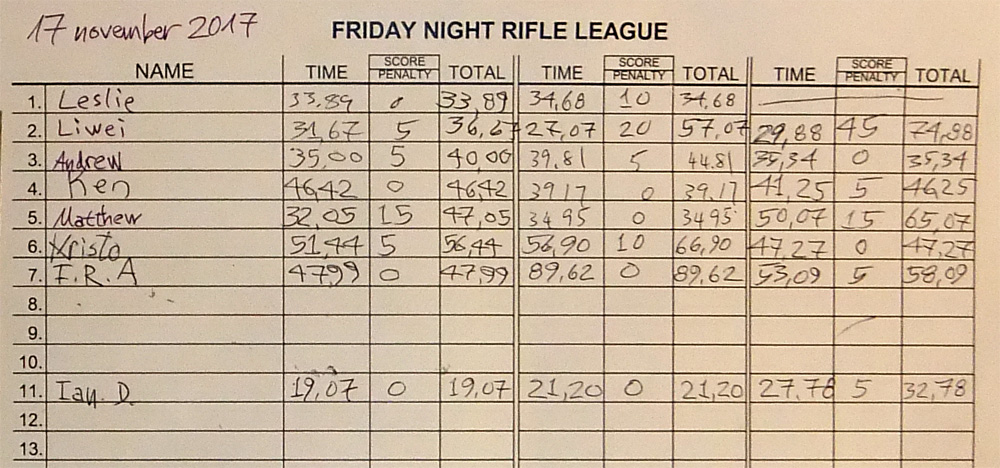 17 november 2017 FRIDAY NIGHT RIFLE LEAGUE
NAME TIME SCORE PENALTY TOTAL TIME SCORE PENALTY TOTAL TIME SCORE PENALTY TOTAL
1. Leslie 33,89 0 33,89 34,68 10 34,68
2. Liwei 31,67 5 36,67 27,07 20 57,07 29,88 45 74,88
3. Andrew 35,00 5 40,00 39,81 5 44.81 35,34 0 35,34
4. Ken 46,42 0 46,42 39,17 0 39,17 41,25 5 46,25
5. Matthew 32,05 15 47,05 34 95 0 34 95 50,07 15 65,07
6. Kristo 51,44 5 56,44 56,90 10 66,90 47,27 0 47,27
7. F.R.A 47,99 0 47,99 89,62 0 89,62 53,09 5 58,09
8.
9.
10.
11. Ian. D. 19,07 0 19,07 21,20 0 21,20 27.78 5 32,78
12.
13.